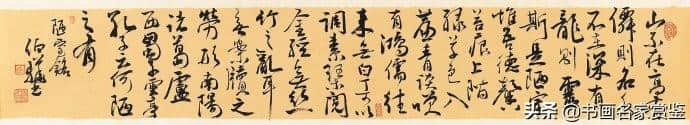 山不在高有
僊則名水
不在深有
龍則靈
斯是陋室
惟吾德馨
苔痕上階
綠草色入
簾青談笑
有鴻儒往
來無白丁可以
調素琴閱
金經無絲
竹之亂耳
無案牘之
勞形南陽
諸葛廬
西蜀子雲亭
孔子云何陋
之有
陋室銘
伯
头条 @书画名家赏鉴